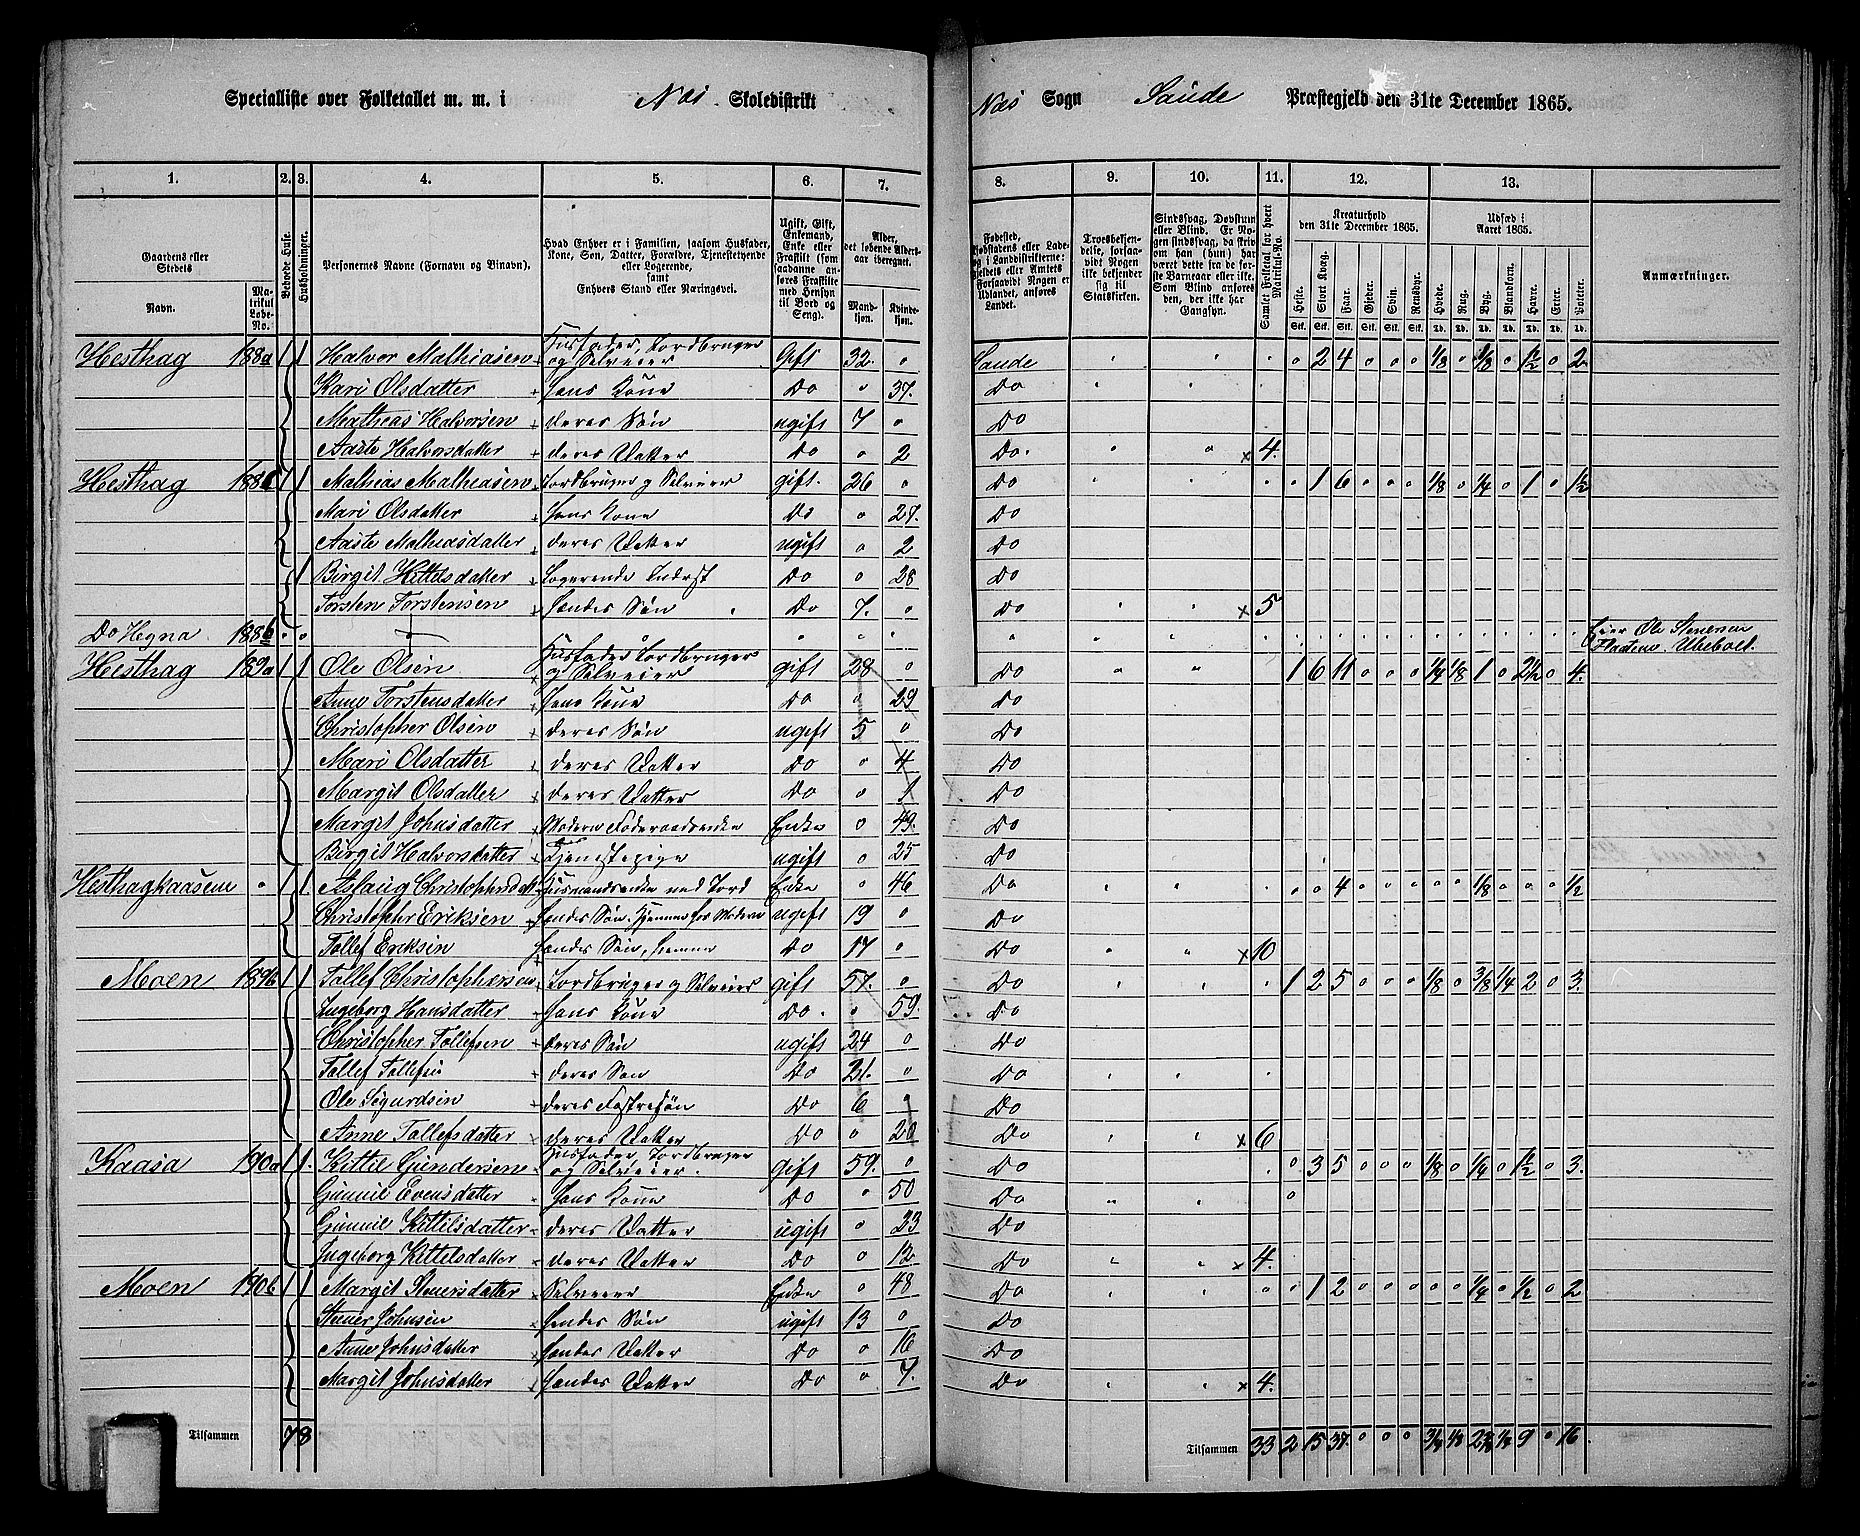 Specialliste over Folketallet m. m. i Næs Skoledistrikt Næs Sogn Saude Præstegjeld den 31te December 1865.
1. 2. 3. 4. 5. 6. 7. 8. 9. 10. 11. 12. 13.
Gaardens eller Stedets
Navn.
Matrikul Løbe-No.
Beboede Huse.
Husholdninger.
Personernes Navne (Fornavn og Binavn).
Hvad Enhver er i Familien, saasom Husfader, Kone, Søn, Datter, Forældre, Tjenestetyende eller Logerende, samt Enhvers Stand eller Næringsvei.
Ugift, Gift, Enkemand, Enke eller Fraskilt (som saadanne anføres Fraskilte med Hensyn til Bord og Seng).
Alder, det løbende Aldersaar iberegnet.
Mandkjøn.
Kvindekjøn.
Troesbekjendelse, forsaavidt Nogen ikke bekjender sig til Statskirken.
Samlet Folketal for hvert Matrikul-No.
Kreaturhold den 31te December 1865.
Heste. Stort Kvæg. Faar. Gjeder. Svin. Rensdyr.
Udsæd i Aaret 1865.
Hvede. Rug. Byg. Blandkorn. Havre. Erter. Poteter.
Anmærkninger.
Hesthag 188a 1 1 Halvor Mathiasen Husfader, Jordbruger og Selveier Gift 32 0 Saude 0 2 4 0 0 0 1/8 0 3/8 0 1½ 0 2
Kari Olsdatter Hans Kone Do 0 37. Do
Mathias Halvorsen deres Søn ugift 7 0 Do
Aaste Halvorsdatter deres Datter Do 0 2 Do. 4.
Hesthag 188 1 1 Mathias Mathiasen Jordbruger og Selveier gift. 26 0 Do 0 1 6 0 0 0 1/8 0 1/4 0 1 0 1½
Mari Olsdatter Hans Kone Do 0 27. Do
Aaste Mathiasdatter deres Datter ugift 0 2 Do
1 Birgit Kittelsdatter Logerende Inderst Do 0 28 Do
Torsten Torstensen Hendes Søn Do 7. 0 Do 5
Do Hegna 188b Eier Ole Stenersen
Hesthag 189a 1 1 Ole Olsen Husfader Jordbruger og Selveier gift 28 0 Do 1 6 11 0 0 0 1/4 1/8 1 0 2½ 0 4.
Anne Torstensdatter Hans Kone Do 0 29 Do
Christopher Olsen deres Søn ugift 5 0 Do
Mari Olsdatter deres Datter Do 0 4 Do
Margit Olsdatter deres Datter Do 0 1 Do
Margit Johnsdatter Moderen Føderaadsenke Enke 0 49. Do
Birgit Halvorsdatter Tjenestepige ugift 0 25 Do
Hesthagkaasene 1 1 Aslaug Christophersdat. Husmandsenke med Jord Enke 0 46 Do 0 0 4 0 0 0 0 0 1/8 0 0 0 1/2
Christopher Eriksen Hendes Søn. Hjemme for Moderen ugift 19 0 Do
Tollef Eriksen Hendes Søn, hjemme Do 17 0 Do 10
Moen 189b 1 1 Tollef Christophersen Jordbruger og Selveier gift 57. 0 Do 1 2 5 0 0 0 1/8 0 3/8 1/4 2 0 3.
Ingeborg Hansdatter Hans Kone Do. 0 59. Do
Christopher Tollefsen deres Søn ugift 24 0 Do
Tollef Tollefsen deres Søn Do 21. 0 Do
Ole Sigurdsen deres Fostresøn Do 6 0 Do
Anne Tollefsdatter deres Datter Do 0 20 Do 6
Kaasa 190a 1 1 Kittil Gundersen Husfader, Jordbruger og Selveier. gift 59. 0 Do 0 3 5 0 0 0 1/8 0 1/4 0 1½ 0 3.
Gunnil Evensdatter Hans Kone Do 0 50 Do
Gunnil Kittilsdatter deres Datter ugift 0 23 Do
Ingeborg Kittilsdatter deres Datter Do 0 12 Do 4.
Moen 190b 1 1 Margit Stenersdatter Selveier Enke 0 48 Do 0 1 2 0 0 0 0 0 1/4 0 1/2 0 2
Stener Johnsen Hendes Søn ugift 13 0 Do
Anne Johnsdatter Hendes Datter Do 0 16 Do
Margit Johnsdatter Hendes Datter Do 0 7. Do 4.
Tilsammen 7 8 Tilsammen 33 2 15 37. 0 0 0 3/4 1/8 2 1/8 9 0 16